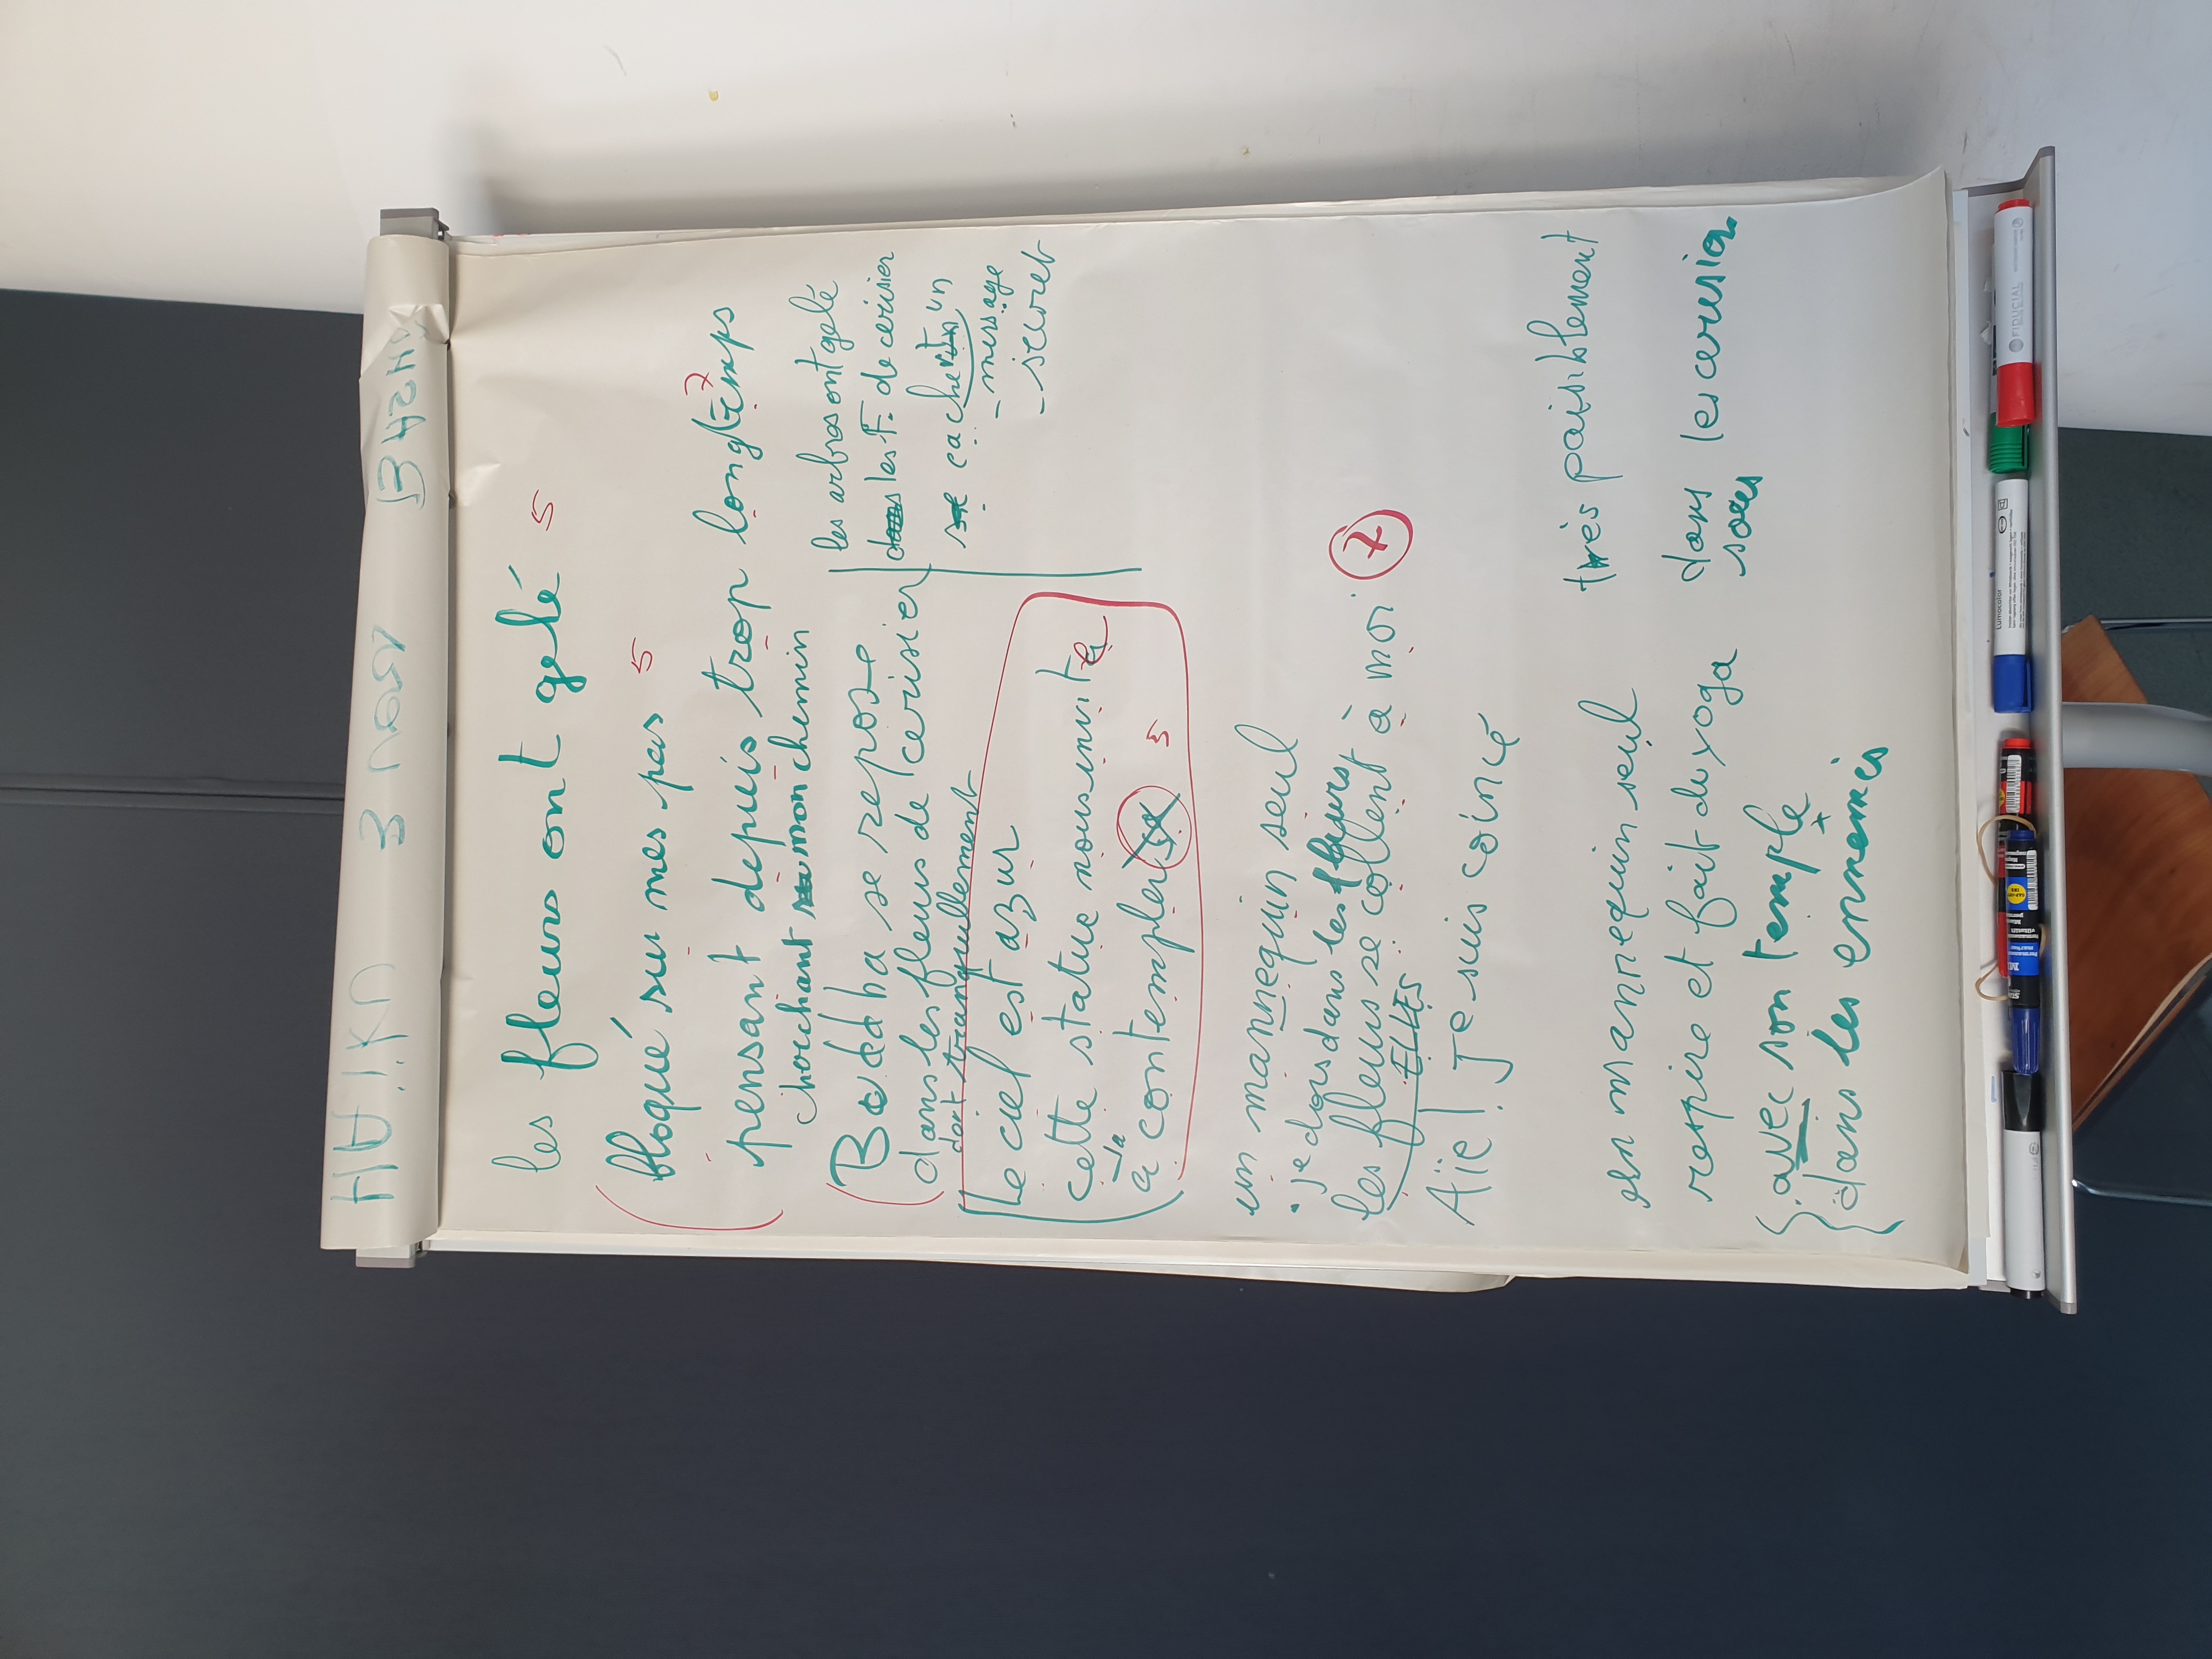 HAIKU 3 VERS BASHO
les fleurs ont gelé 5
bloqué sur mes pas 5
pensant depuis trop longtemps 7
cherchant mon chemin
Bouddha se repose
dans les fleurs de cerisier
dort tranquillement
les arbres ont gelé
dans les F. de cerisier
se cache un
- message
- secret
Le ciel est azur
cette statue nous invite
à la contempler 5
un mannequin seul
• je dors dans les fleurs
les fleurs se collent à moi 7
ELLES
Aïe! Je suis coincé
un mannequin seul
très paisiblement
respire et fait du yoga
dans les cerisiers
avec son temple
dans les ennemis
FIDUCIAL
Lumocolor